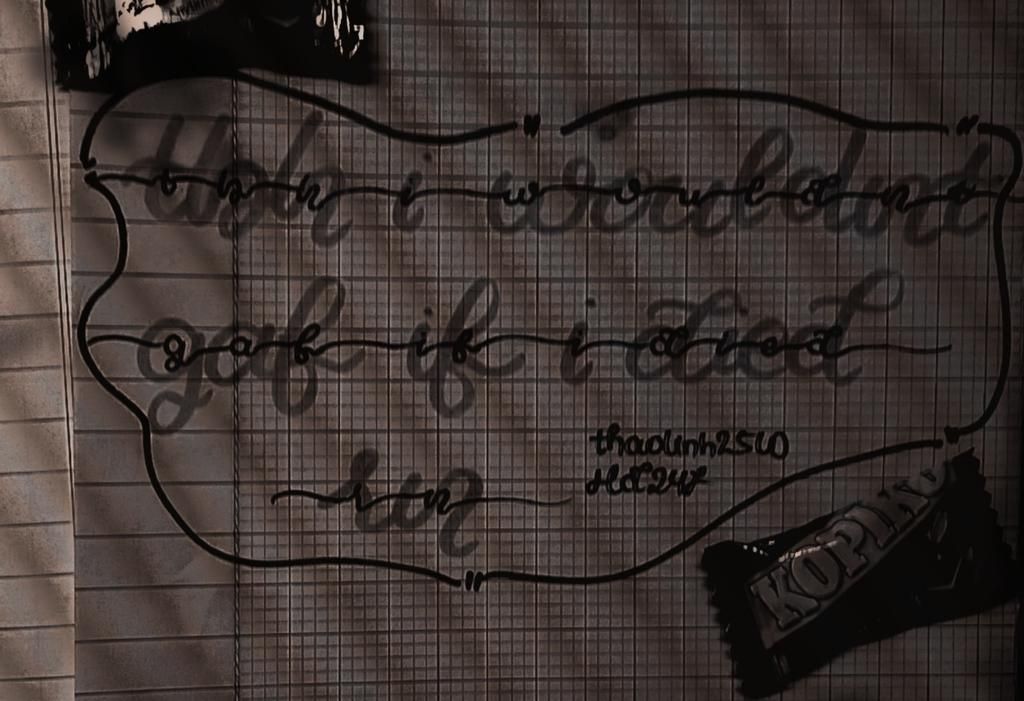 tbh i wouldnt
gaf if i died
rn
thaolinh2510
Hd247
KOPIKO